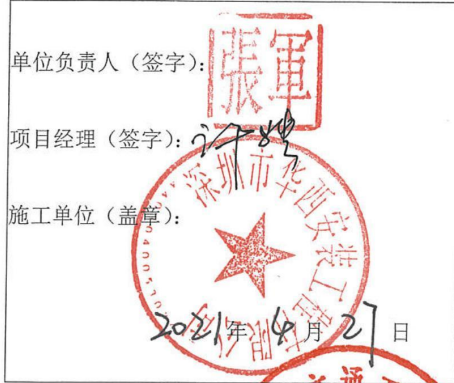 单位负责人（签字）：
張軍
项目经理（签字）：许
施工单位（盖章）：
深圳市华西安装工程有限公司
2021年4月27日